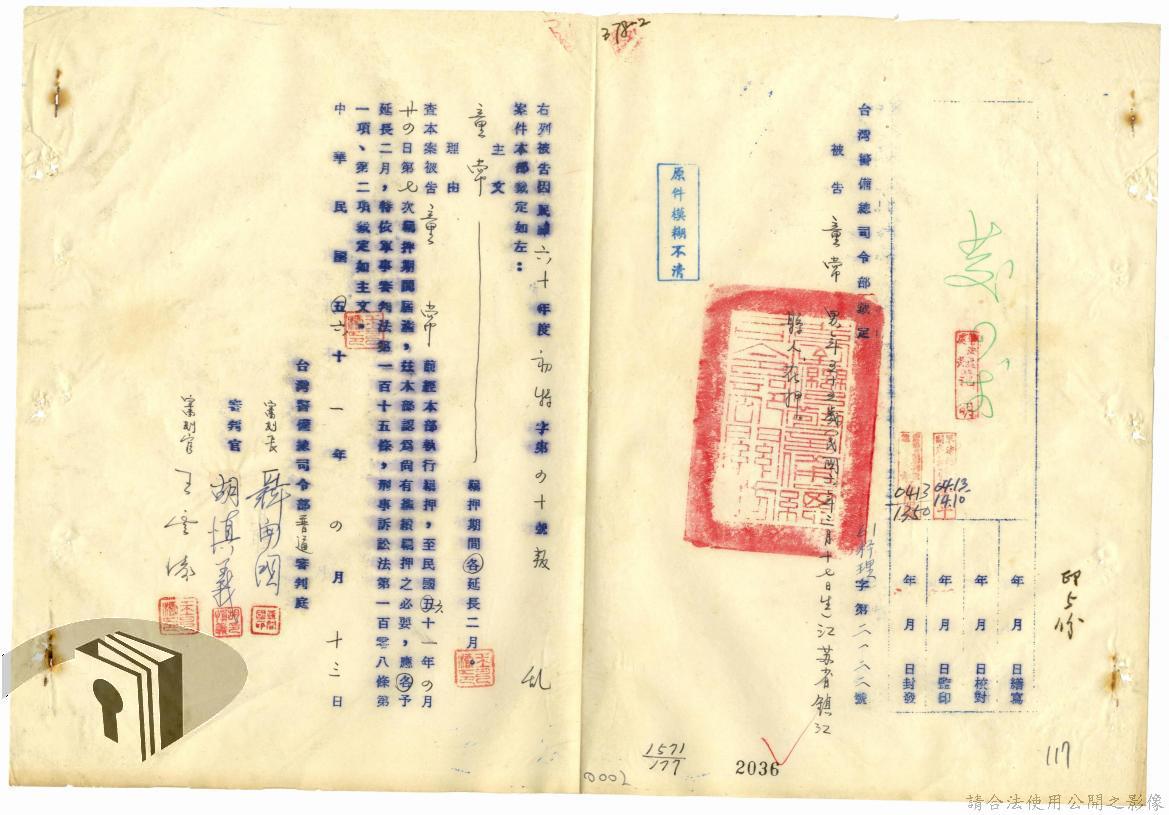 378-2
印5份
年 月 日繕寫
年 月 日校對
年 月 日監印
年 月 日封發
0413
1410
0413
1350
台灣警備總司令部裁定
字第二一三三號
被告 童常 男年五十三歲民國
年三月十七日生江蘇省鎮江
縣人在押。
原件模糊不清
117
2036
1571
177
0002
右列被告因民國六十年度初特字第四十號叛亂
案件本部裁定如左：
主文
童常 羈押期間各延長二月。
理由
查本案被告童常前經本部執行羈押，至民國五六十一年四月
廿四日第七次羈押期間屆滿，茲本部認為尚有繼續羈押之必要，應各予
延長二月，特依軍事審判法第一百十五條，刑事訴訟法第一百零八條第
一項、第二項裁定如主文。
中華民國五六十一年四月十三日
台灣警備總司令部普通審判庭
審判長 聶開國
審判官 胡模義
審判官 王雲濤
請合法使用公開之影像